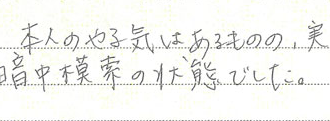 本人のやる気はあるものの、実
暗中模索の状態でした。